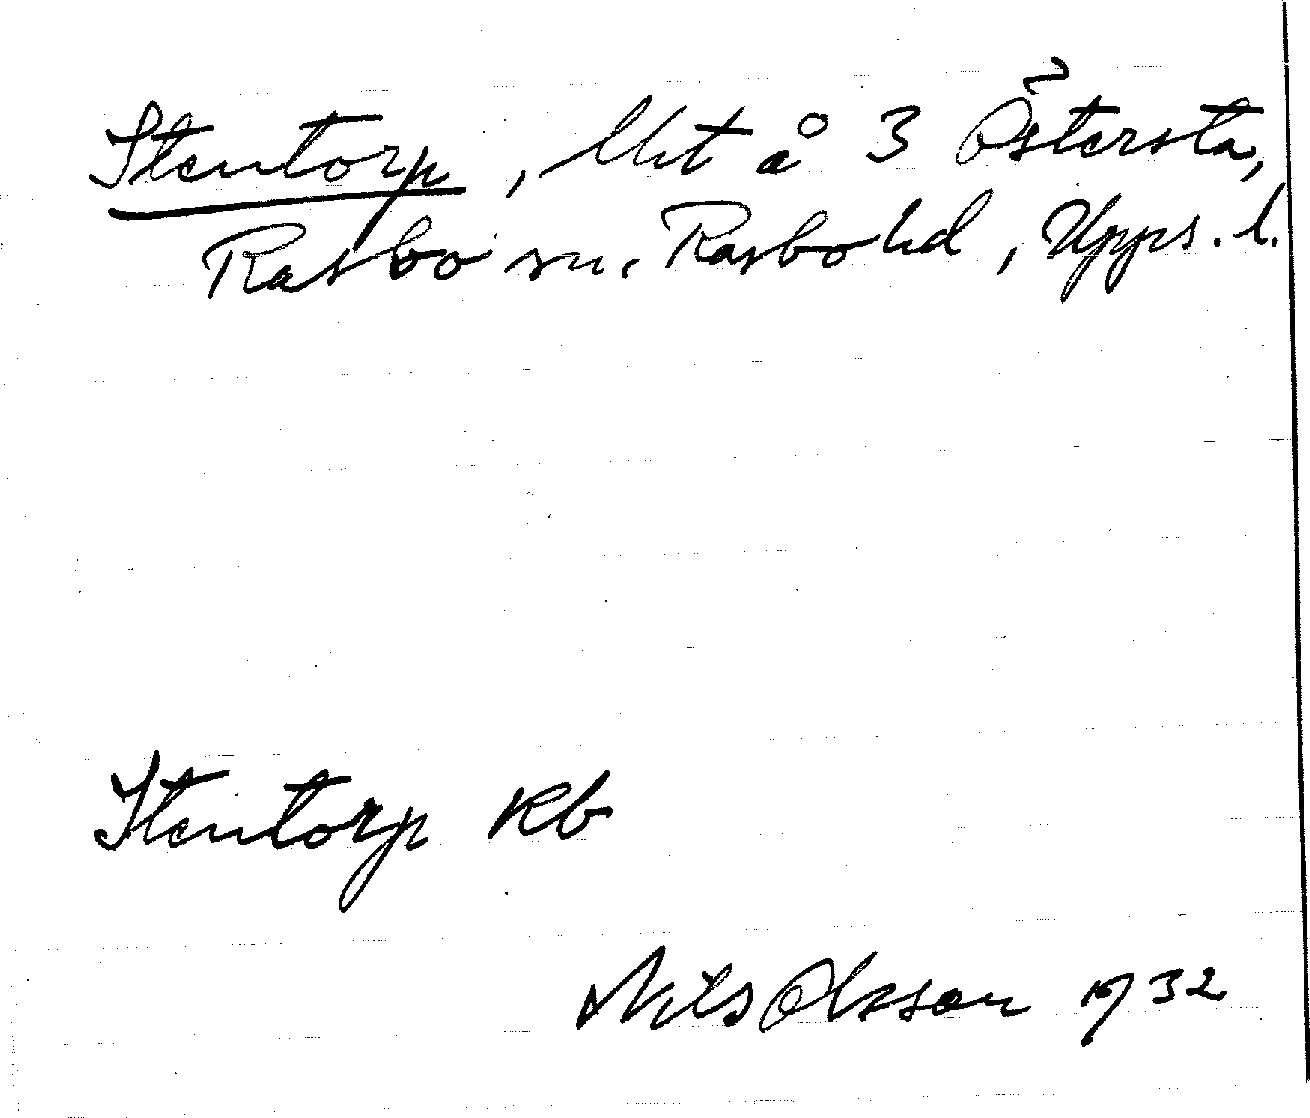 Stentorp, lht å 3 Östersta,
Rasbo sn. Rasbo hd, Upps. l.
Stentorp Rb
Nils Olsson 1932